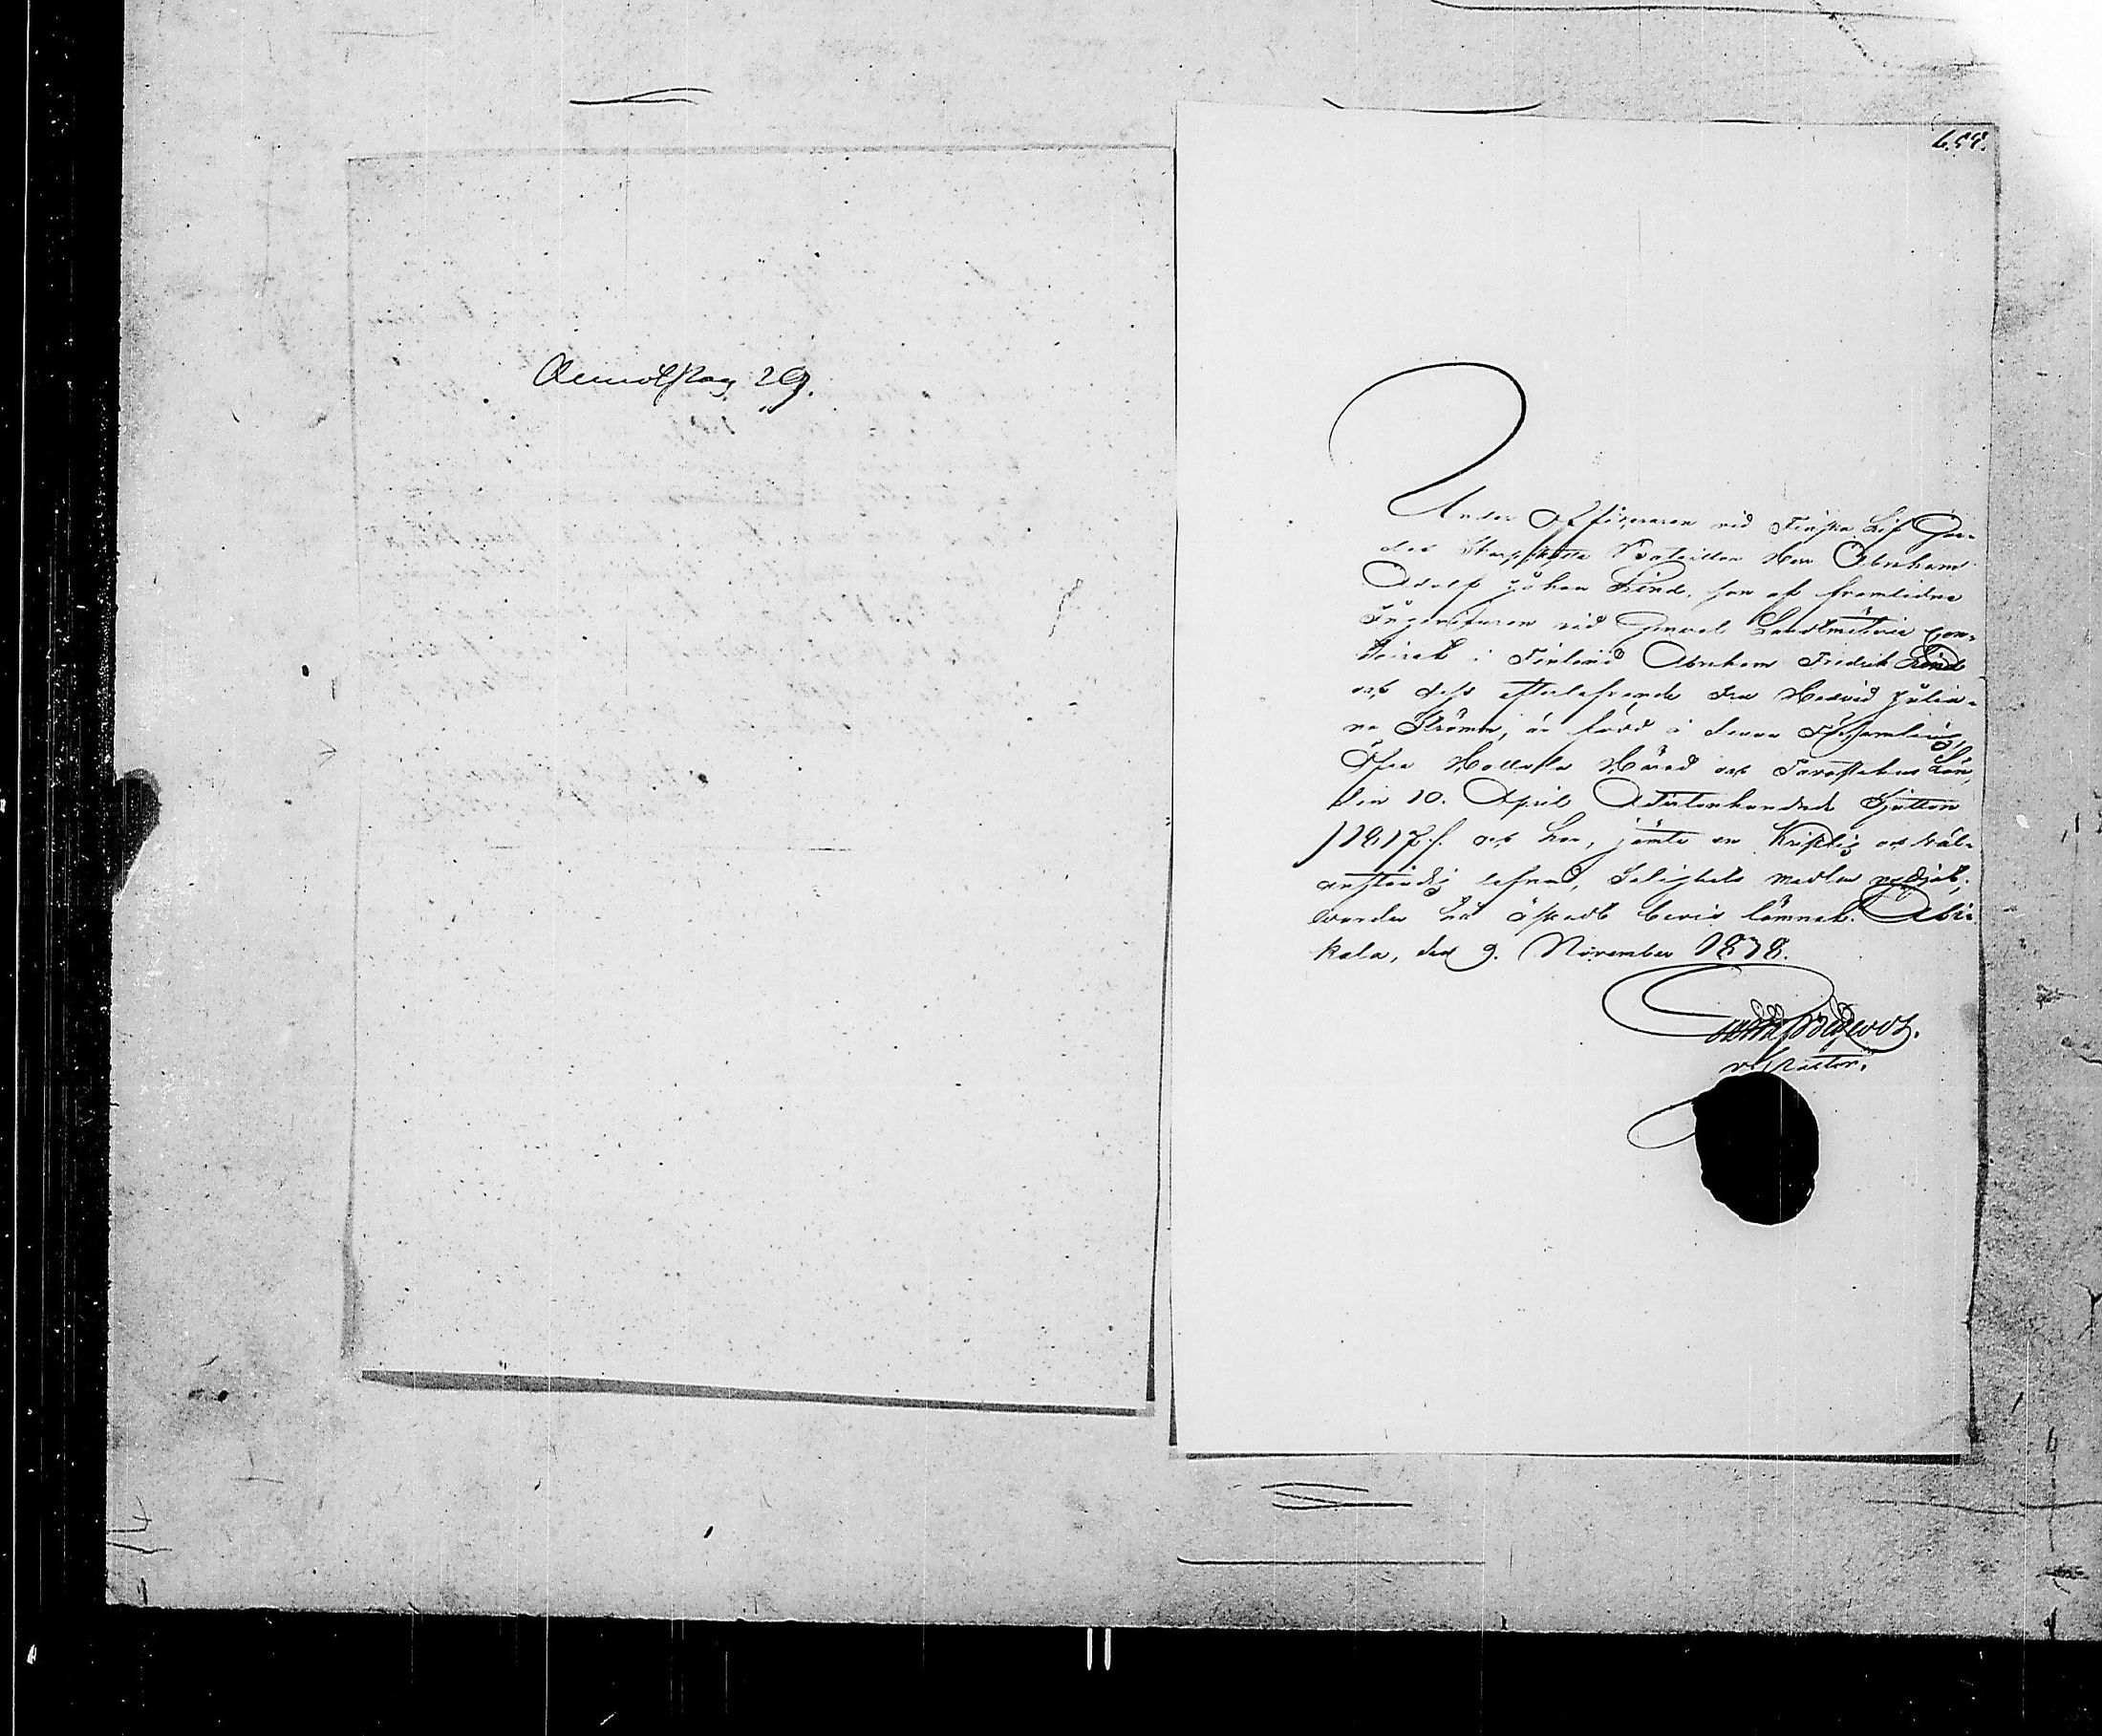 659.
Under Officeraren vid Finska Lif Gar-
des Skarpskytte Bataillon Herr Abraham
Adolf Johan Lind, son af framlidne
Ingenieuren vid General Landtmäterie Con-
toiret i Finland Abraham Fredrik Lind
och dess efterlefvande Fru Hedvid Julia-
na Ströman, är född i denna Församling,
Öfre Hollola Härad och Tavastehus Län,
den 10. April Adertonhundrade Sjutton
/1817./. och har, jämte en Kristlig och väl-
anständig lefnad, Salighets medlen vördjat;
warder här åskadt bevis lämnat. Asik-
kala, den 9. November 1838.
v. Pastor.